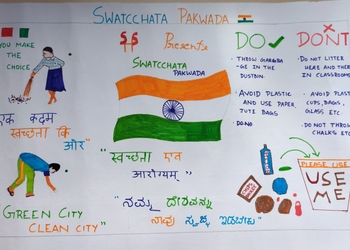 SWATCCHATA PAKWADA
YOU MAKE
THE
CHOICE
एक कदम
स्वच्छता कि
ओर"
GREEN CITY
CLEAN CITY"
Presents
SWATCCHATA
PAKWADA
"स्वच्छता एव
आरोग्यम्"
"ನಮ್ಮ ದೇಶವನ್ನು
ನಾವು ಸ್ವಚ್ಛ ಇಡಬೇಕು"
DO
- THROW GARBA
-GE IN THE
DUSTBIN.
- AVOID PLASTIC
AND USE PAPER,
JUTE BAGS
- DO NO
DON'T
- DO NOT LITTER
HERE AND THERE
IN CLASSROOM
- AVOID PLASTIC
CUPS, BAGS,
GLASS ETC
- DO NOT THROW
CHALKS ETC
PLEASE USE
USE
ME